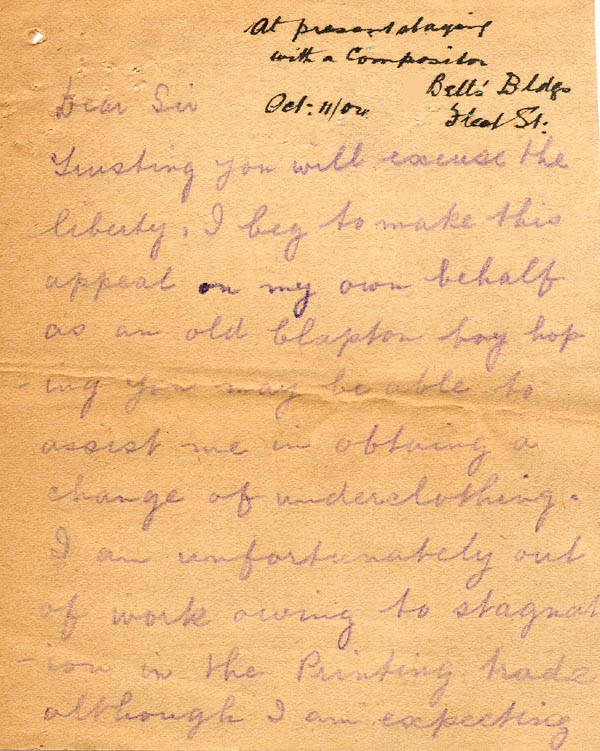 At present staying
with a Compositor
Bell's Bldgs
Fleet St.
Oct: 11/04
Dear Sir
Trusting you will excuse the
liberty, I beg to make this
appeal on my own behalf
as an old Clapton boy hop
-ing you may be able to
assist me in obtaing a
change of underclothing.
I am unfortunately out
of work owing to stagnat
-ion in the Printing trade
although I am expecting